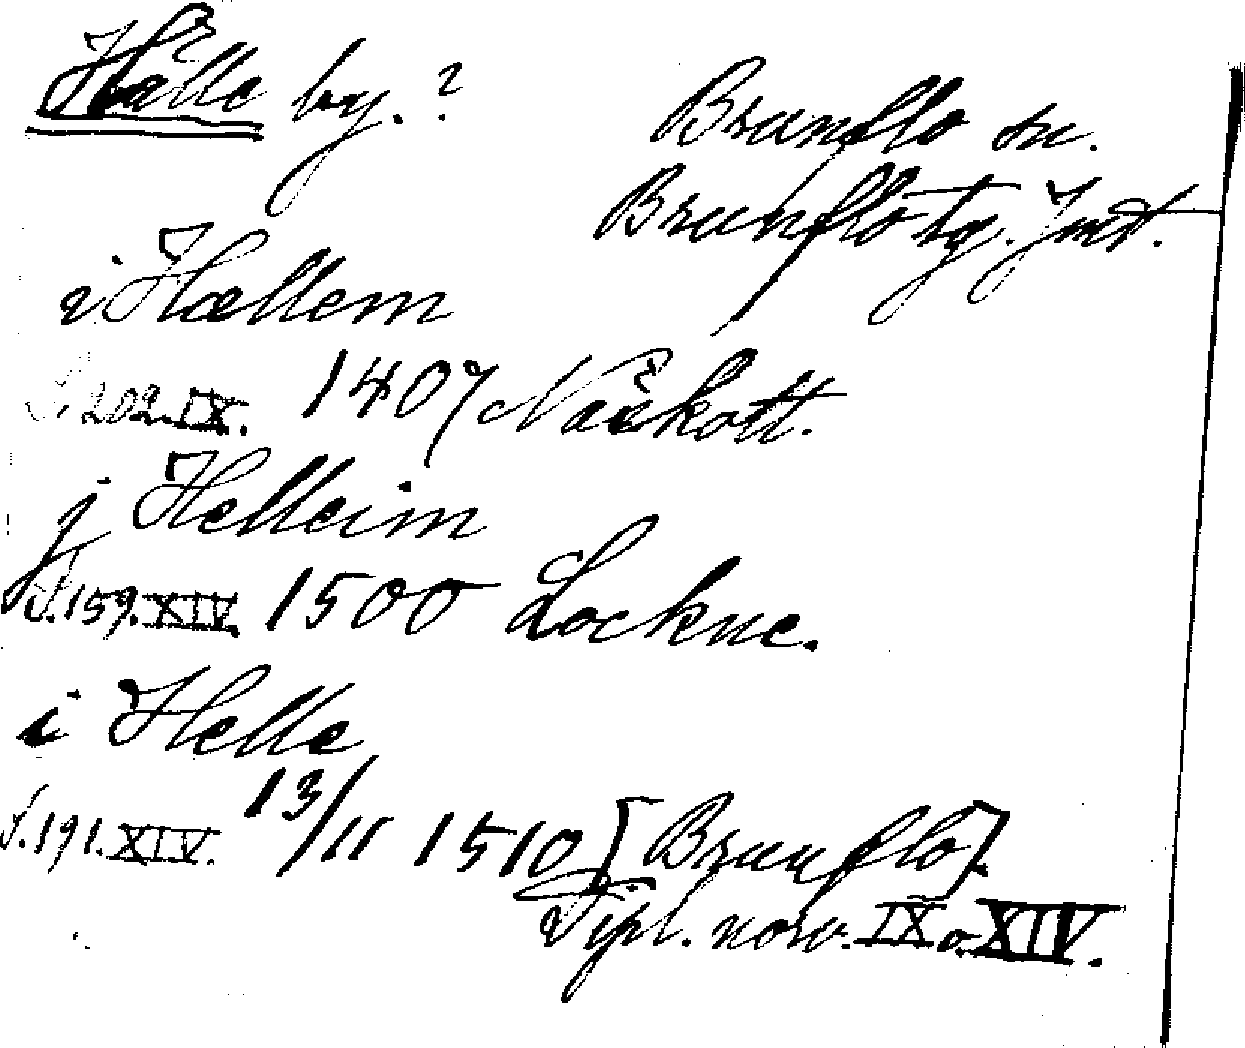 Hälle by.?
Brunflo sn.
Brunflo tg. Jmt.
i Hællem
S. 202. IX. 1407 Näskott.
j Helleim
S. 159. XIV. 1500 Lockne.
i Helle
S. 191. XIV. 13/11 1510 [Brunflo].
Dipl. norv. IX o. XIV.